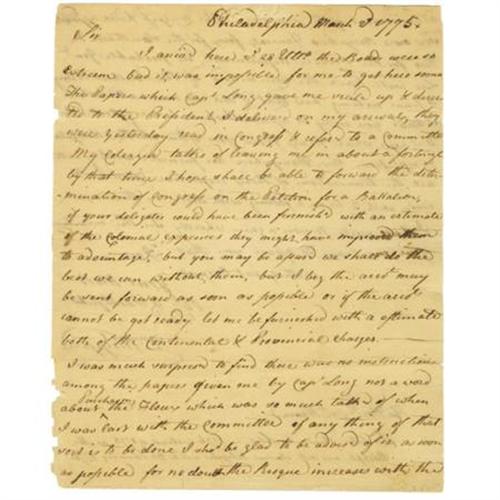 Philadelphia March 2 1775.
Sir
I arriv'd here ye 28 Ulto. the Roads were so
Extreem bad it was impossible for me to get here sooner
The Papers which Capt. Long gave me seal'd up & directed
to the President I deliver'd on my arrival, they
were Yesterday read in Congress & refer'd to a Committee
My Colleague talks of leaving me in about a fortnight
by that time I hope shall be able to forward the deter-
mination of Congress on the Petition for a Battalion,
if your delegates could have been furnish'd with an estimate
of the Colonial expences they might have improved them
to advantage, but you may be assur'd we shall do the
best we can without them, but I beg the acco'ts may
be sent forward as soon as possible or if the acco'ts
cannot be got ready let me be furnished with a estimate
both of the Continental & Provincial charges.
I was much surprised to find there was no instructions
among the papers given me by Capt Long nor a word
about Purchasg. the Flour which was so much talk'd of when
I was last with the Committee if any thing of that
sort is to be done I shod be glad to be advised of it as soon
as possible for no doubt the Risque increases with the